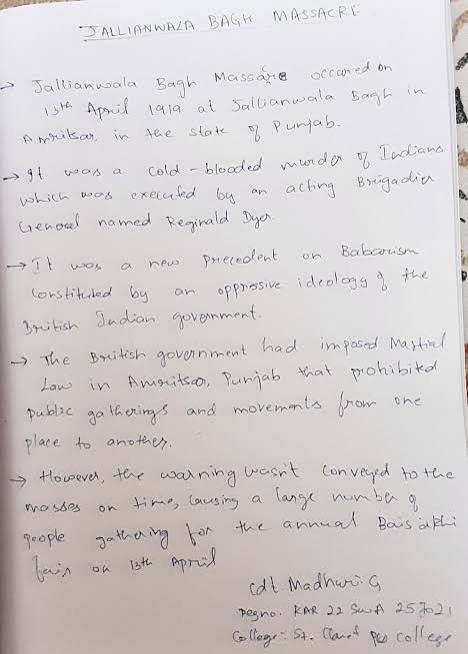 JALLIANWALA BAGH MASSACRE
→ Jallianwala Bagh Massacre occured on
13th April 1919 at Jallianwala Bagh in
Amritsar, in the state of Punjab.
→ It was a cold-blooded murder of Indians
which was executed by an acting Brigadier
General named Reginald Dyer.
→ It was a new precedent on Babarism
constituted by an oppressive ideology of the
British Indian government.
→ The British government had imposed Martial
Law in Amritsar, Punjab that prohibited
public gatherings and movements from one
place to another.
→ However, the warning wasn't conveyed to the
masses on time, causing a large number of
people gathering for the annual Baisakhi
fair on 13th April
Cdt Madhuri G
Regno. KAR 22 SWA 257021
College: St. Claret PU college